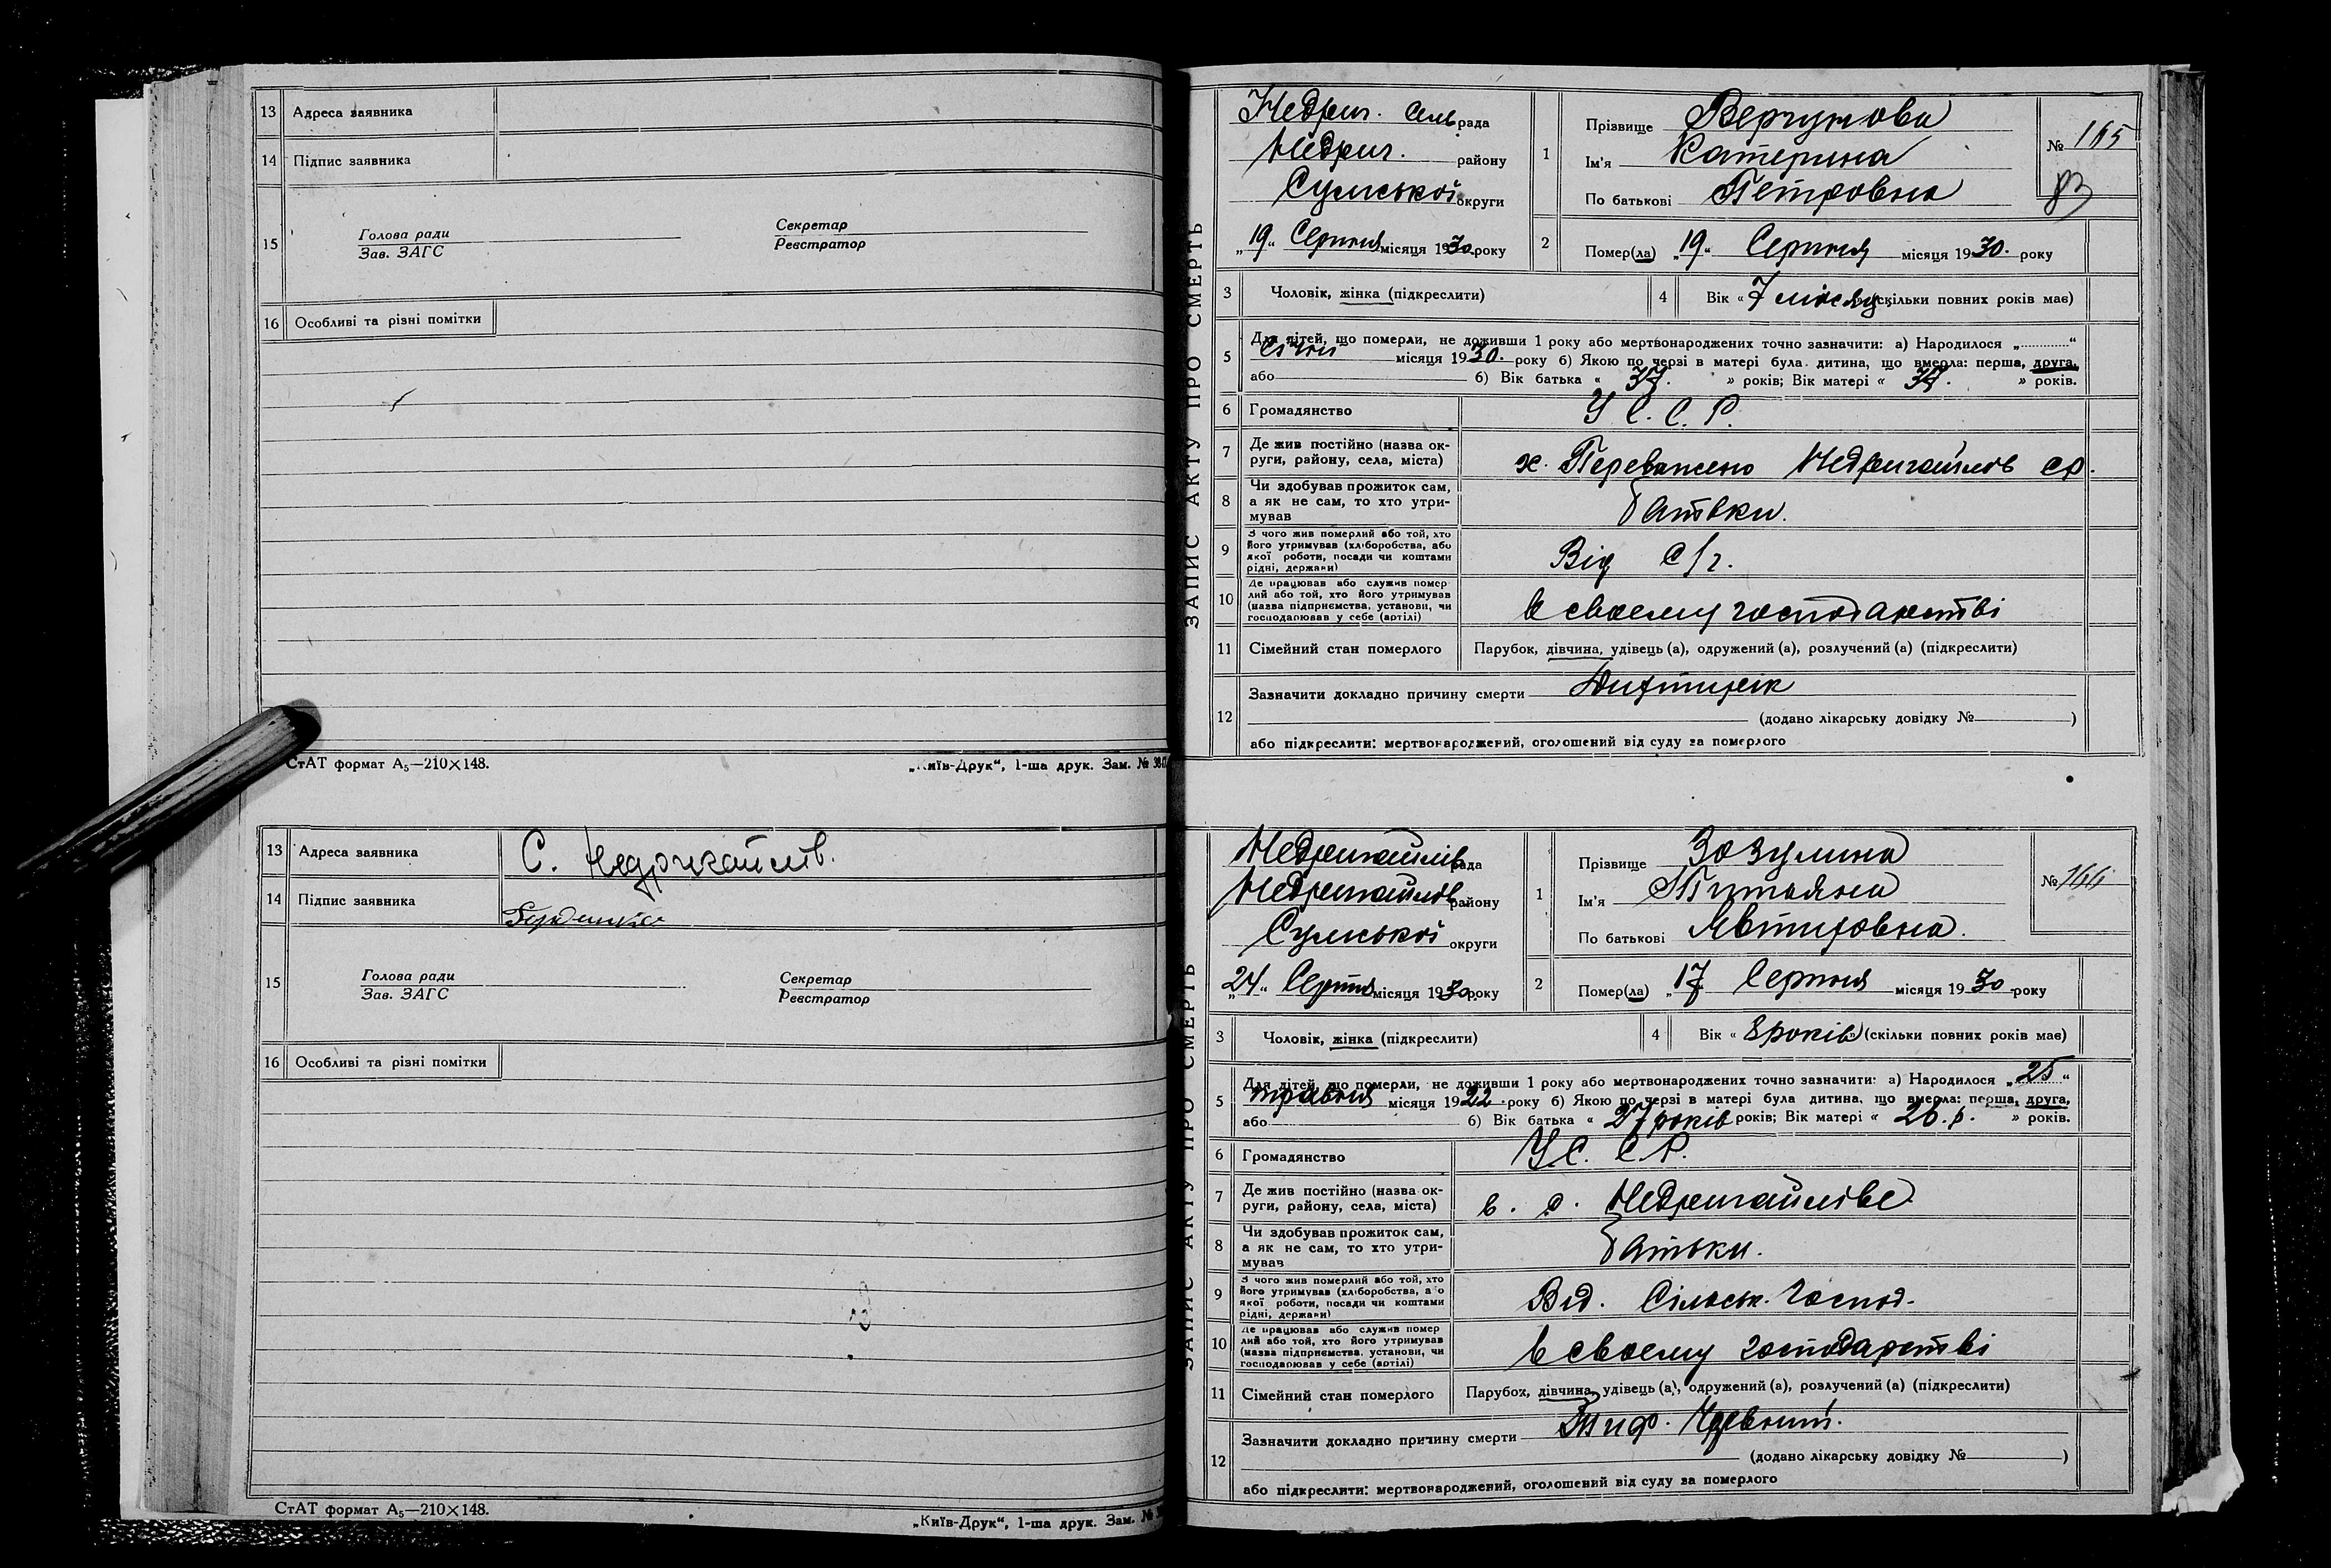 13 Адреса заявника
14 Підпис заявника
15 Голова ради
Зав. ЗАГС
Секретар
Реєстратор
16 Особливі та різні помітки
СтАТ формат А5—210×148.
„Київ-Друк“, 1-ша друк. Зам. №
13 Адреса заявника С. Недригайлів.
14 Підпис заявника
15 Голова ради
Зав. ЗАГС
Секретар
Реєстратор
16 Особливі та різні помітки
СтАТ формат А5—210×148.
„Київ-Друк“, 1-ша друк. Зам. №
ЗАПИС АКТУ ПРО СМЕРТЬ
Недриг. Сель рада
Недриг. району
Сумської округи
„19“ Серпня місяця 1930 року
1 Прізвище
Ім'я Катерина
По батькові Петровна
№ 165
83
2 Помер(ла) „19“ Серпня місяця 1930. року
3 Чоловік, жінка (підкреслити)
4 Вік « 7 місяц. (скільки повних років має)
5 Для дітей, що померли, не доживши 1 року або мертвонароджених точно зазначити: а) Народилося „ “
Січня місяця 1930. року б) Якою по черзі в матері була дитина, що вмерла: перша, друга,
або б) Вік батька « 37. » років; Вік матері « » років.
6 Громадянство У С. С. Р.
7 Де жив постійно (назва ок-
руги, району, села, міста) х. Недригайлів ср.
8 Чи здобував прожиток сам,
а як не сам, то хто утри-
мував Батьки.
9 З чого жив померлий або той, хто
його утримував (хліборобства, або
якої роботи, посади чи коштами
рідні, держави) Від с/г.
10 Де працював або служив помер
лий або той, хто його утримував
(назва підприємства, установи, чи
господарював у себе (артілі) в своему господарстві
11 Сімейний стан померлого Парубок, дівчина, удівець (а), одружений (а), розлучений (а) (підкреслити)
12 Зазначити докладно причину смерти Дифтирик
(додано лікарську довідку № )
або підкреслити: мертвонароджений, оголошений від суду за померлого
ЗАПИС АКТУ ПРО СМЕРТЬ
Недригайлів рада
Недригайлів району
Сумської округи
„24“ Серпня місяця 1930 року
1 Прізвище Зозулина
Ім'я Титьяна
По батькові Явтиховна.
№ 166
2 Помер(ла) „17 Серпня місяця 1930 року
3 Чоловік, жінка (підкреслити)
4 Вік « 8 років» (скільки повних років має)
5 Для дітей, що померли, не доживши 1 року або мертвонароджених точно зазначити: а) Народилося „25“
травня місяця 1922. року б) Якою по черзі в матері була дитина, що вмерла: перша, друга,
або б) Вік батька « 27 років років; Вік матері « 26. р. » років.
6 Громадянство У.С. С.Р.
7 Де жив постійно (назва ок-
руги, району, села, міста) в. с. Недригайліве
8 Чи здобував прожиток сам,
а як не сам, то хто утри-
мував Батьки.
9 З чого жив померлий або той, хто
його утримував (хліборобства, або
якої роботи, посади чи коштами
рідні, держави) Від. Сільськ. Господ.
10 Де працював або служив помер
лий або той, хто його утримував
(назва підприємства, установи, чи
господарював у себе (артілі) в своему господарстві
11 Сімейний стан померлого Парубок, дівчина, удівець (а), одружений (а), розлучений (а) (підкреслити)
12 Зазначити докладно причину смерти Тиф.
(додано лікарську довідку № )
або підкреслити: мертвонароджений, оголошений від суду за померлого